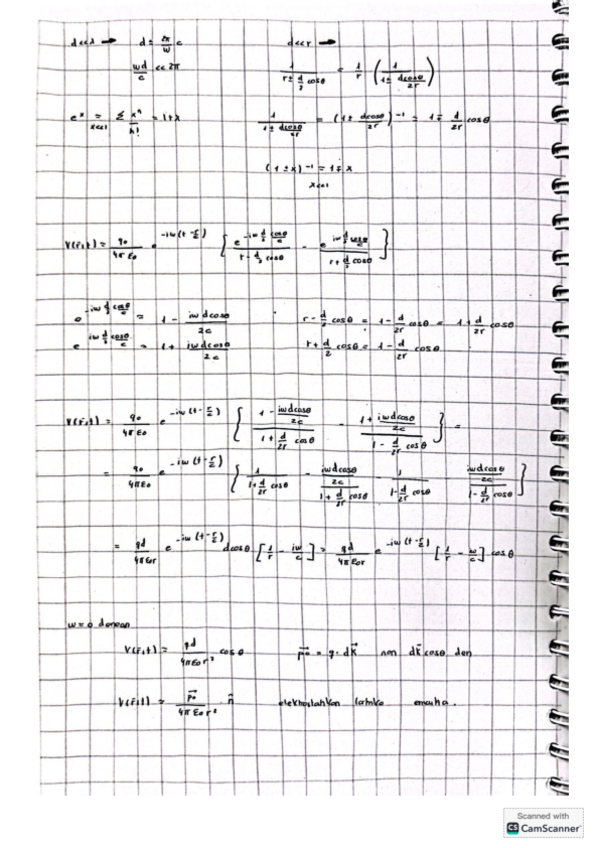 d<<λ → d ± 2π/ω c        d<<r →
ωd/c << 2π        1/(r ± d/2 cosθ) = 1/r (1/(1 ± dcosθ/2r))
e^x ≈_{x<<1} Σ x^n/n! = 1+x        1/(1 ± dcosθ/2r) = (1 ± dcosθ/2r)^-1 = 1 ∓ d/2r cosθ
(1 ± x)^-1 = 1 ∓ x
x<<1
V(r,t) = q0/4πε0 e^{-iω(t - r/c)} { e^{-iω d/2 cosθ/c}/(r - d/2 cosθ) - e^{iω d/2 cosθ/c}/(r + d/2 cosθ) }
e^{-iω d/2 cosθ/c} = 1 - iωdcosθ/2c        r - d/2 cosθ = 1 - d/2r cosθ = 1 + d/2r cosθ
e^{iω d/2 cosθ/c} = 1 + iωdcosθ/2c        r + d/2 cosθ = 1 - d/2r cosθ
V(r,t) = q0/4πε0 e^{-iω(t - r/c)} { (1 - iωdcosθ/2c)/(1 + d/2r cosθ) - (1 + iωdcosθ/2c)/(1 - d/2r cosθ) } =
= q0/4πε0 e^{-iω(t - r/c)} { 1/(1 + d/2r cosθ) - (iωdcosθ/2c)/(1 + d/2r cosθ) - 1/(1 - d/2r cosθ) (iωdcosθ/2c)/(1 - d/2r cosθ) }
= qd/4πε0r e^{-iω(t - r/c)} dcosθ [1/r - iω/c] = qd/4πε0r e^{-iω(t - r/c)} [1/r - ω/c] cosθ
ω=0 denean
V(r,t) = qd/4πε0r² cosθ        p⃗0 = q·dk⃗ non dk⃗cosθ den
V(r,t) = p⃗0/4πε0r² n̂        emaitza.
Scanned with
CS CamScanner